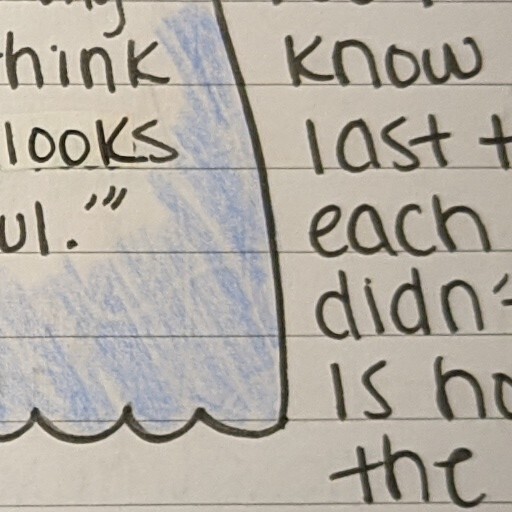 think
looks
ul.'"
know
last t
each
didn'
is
the